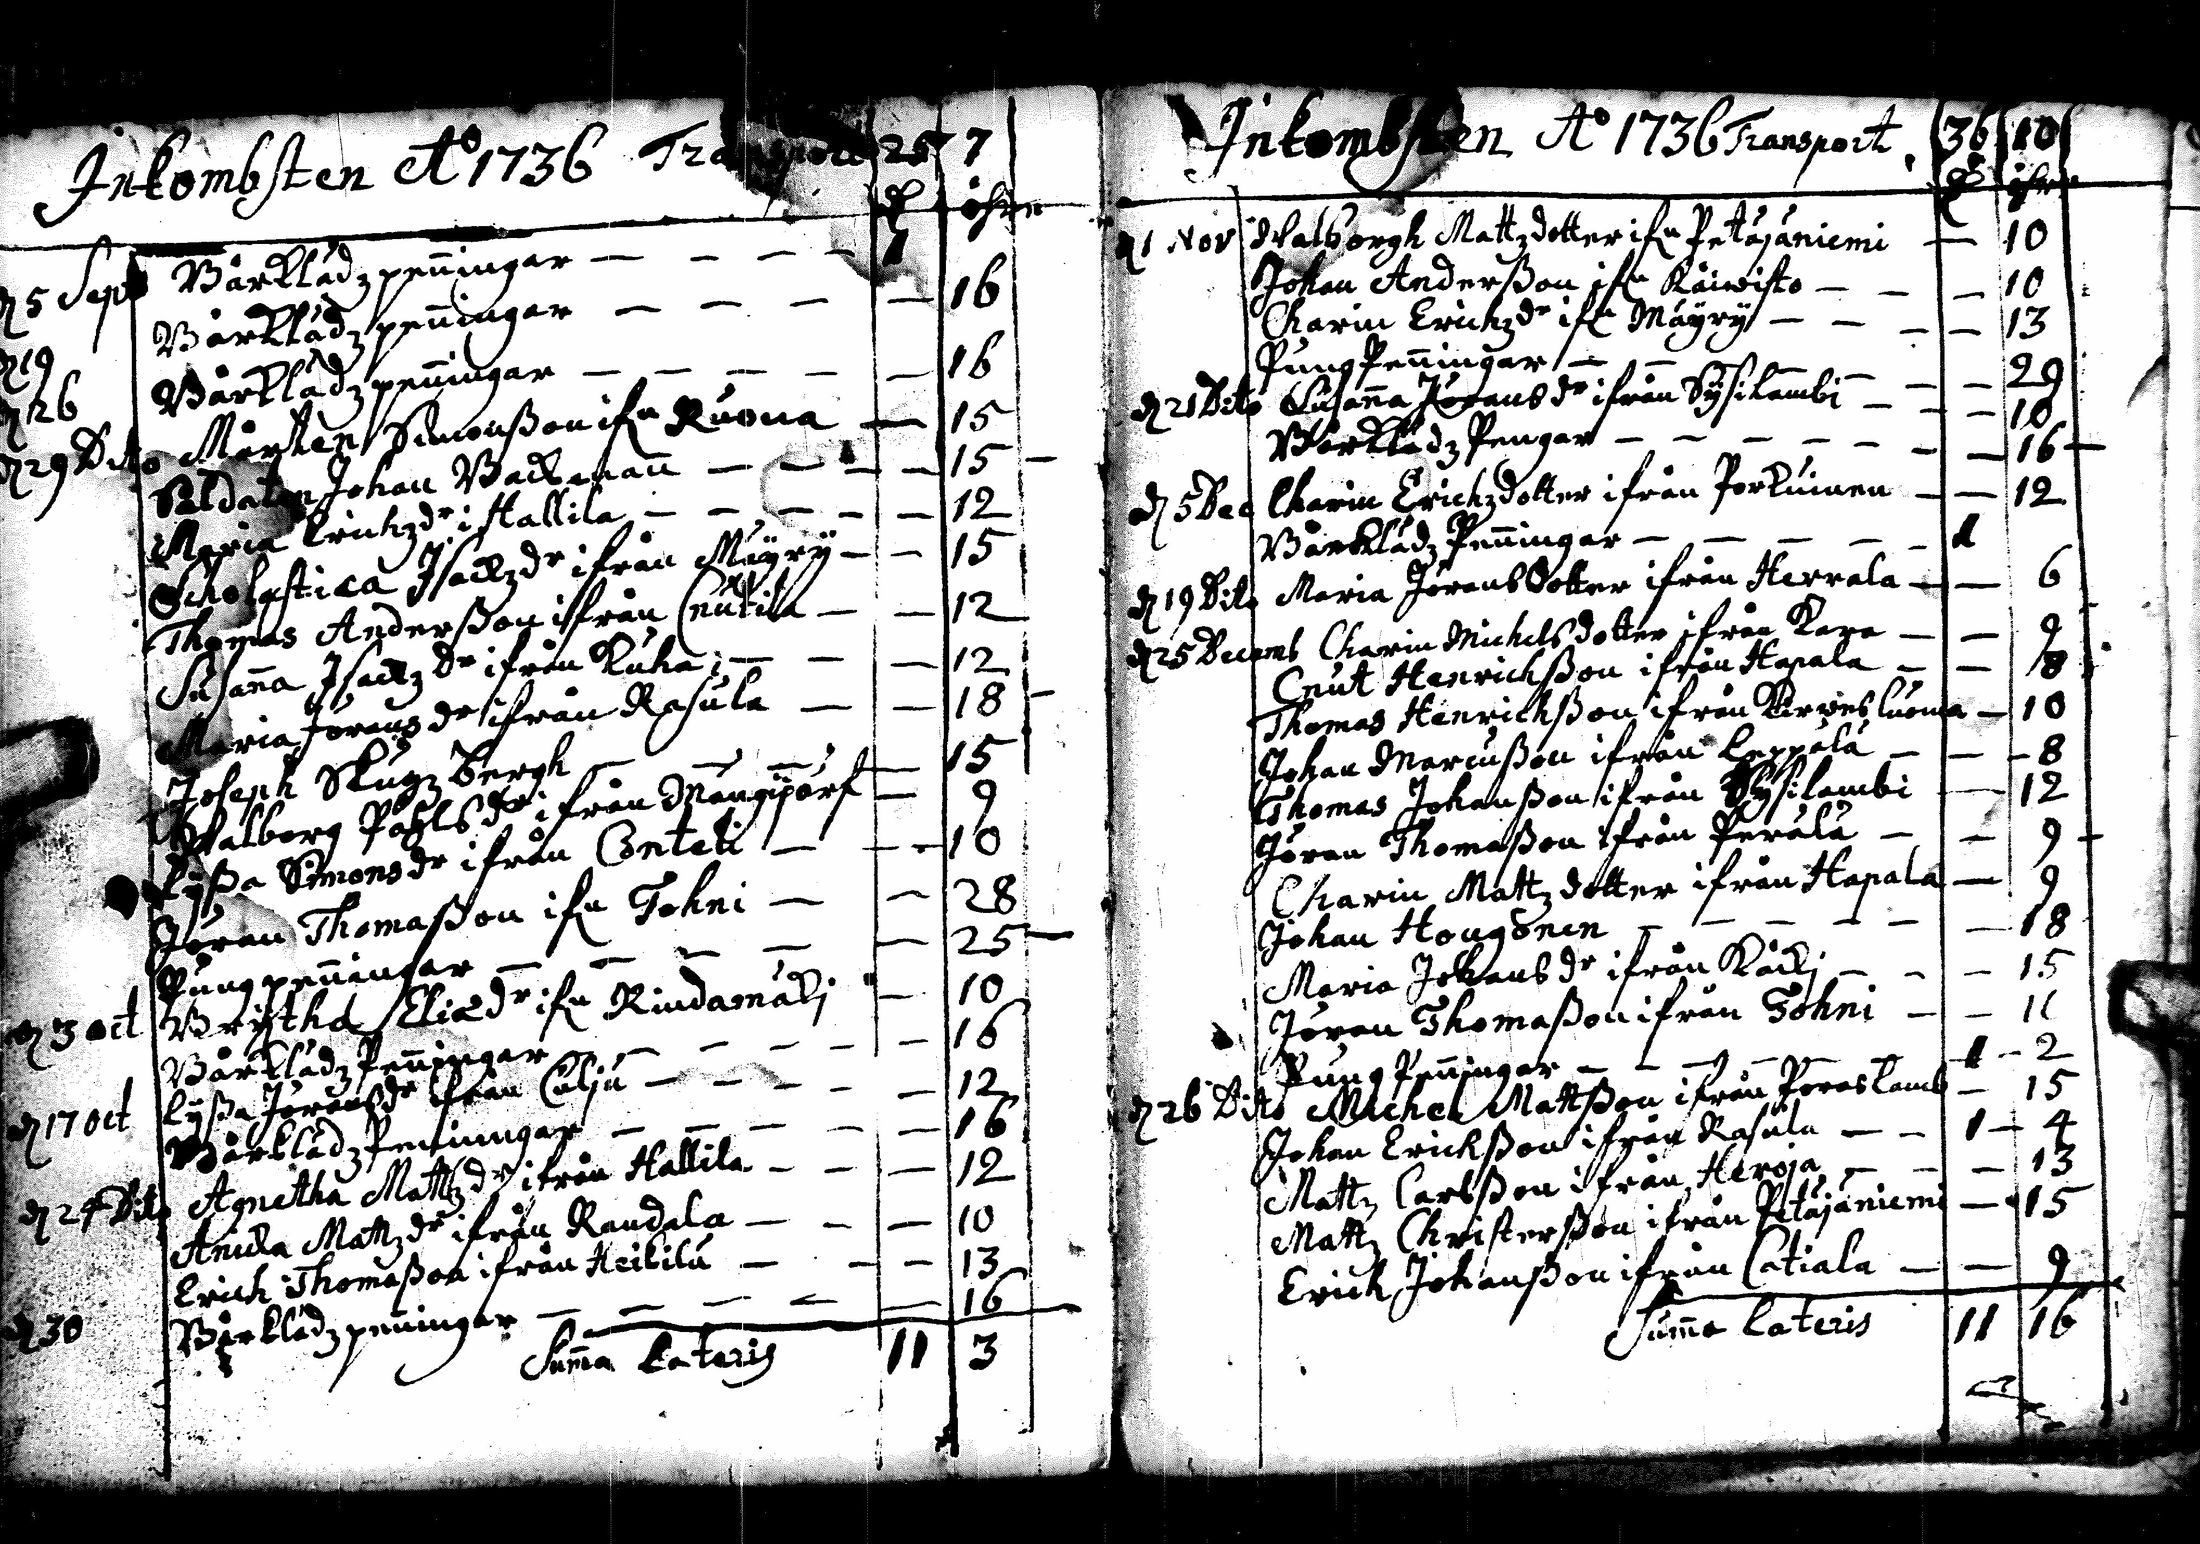 Inkombsten Ao 1736 Transport 25 7
öhre
d 5 Sept Bårklädz peñingar — — — — 1
d 19 Bårklädz peñingar — — — — 16
d 26 Bårklädz peñingar — — — — — 16
d 29 Dito Mårten Simonßon ifn Ruona — 15
Saldaten Johan Backmañ — — — — 15 —
Maria Erichz dr i Hallila — — — — — 12
Scholastica Isackz dr ifrån Mäÿrÿ — — 15
Thomas Anderßon ifrån Cnutila — — 12
Susaña Isackz dr ifrån Kuha — — — 12
Maria Jörans dr ifrån Rasula — — 18 —
Joseph Skugz bergh — — — — 15
Walborg Påhls dr ifrån Mangipörf — 9
Lyßa Simons dr ifrån Conteti — — 10
Jöran Thomaßon ifn Tohni — — 28
Pung peñingar — — — — — 25 —
d 3 Oct Brijtha Eliæ dr ifn Rindamäkj — 10
Bårklädz Peñingar — — — — — 16
d 17 Oct Lyßa Jörans dr ifrån Culju — — — — 12
Bårklädz Penningar — — — — — 16
d 24 Dito Agnetha Mattz dr ifrån Hallila — — — 12
Anicka Mattz dr ifrån Randala — — — 10
Erich Thomaßon ifrån Heikilä — — — 13
d 30 Bårklädz peñingar — — — — — 16
Sum̃a Lateris 11 3
Inkombsten Ao 1736 Transport 36 10
öhre
d 1 Nov Walborgh Mattz dotter ifn Petäjäniemi — 10
Johan Anderßon ifn Köiwisto — — — 10
Charin Erichz dr ifn Mäyrÿ — — — — 13
Pung Peñingar — — — — — 29
d 21 Dito Susaña Jörans dr ifrån Sÿsilambi — — — 10
Bårklädz Pengar — — — — — — — 16 —
d 5 Dec Charin Erichz dotter ifrån Porkuinen — — 12
Bårklädz Peñingar — — — — — 1
d 19 Dito Maria Jörans Dotter ifrån Herrala — — 6
d 25 Decemb Charin Michels dotter ifrån Kara — — 9
Cnut Henrichßon ifrån Hapala — — 18
Thomas Henrichßon ifrån Kirvesluoma — 10
Johan Marcußon ifrån Leppälä — — — 8
Thomas Johanßon ifrån Sÿsilambi — 12
Jöran Thomaßon ifrån Perälä — — 9 —
Charin Mattz dotter ifrån Hapala — 9
Johan Hougonen — — — — — — 18
Maria Johans dr ifrån Käckj — — — 15
Jöran Thomaßon ifrån Tohni — — 11
Pung Peñingar — — — — — 1 — 2
d 26 Dito Michel Mattßon ifrån Poraslamb — 15
Johan Erichßon ifrån Rasula — — 1 — 4
Mattz Carlßon ifrån Heroja — — — 13
Mattz Christerßon ifrån Petäjäniemi — 15
Erich Johanßon ifrån Catiala — — 9
Sum̃a Lateris 11 16